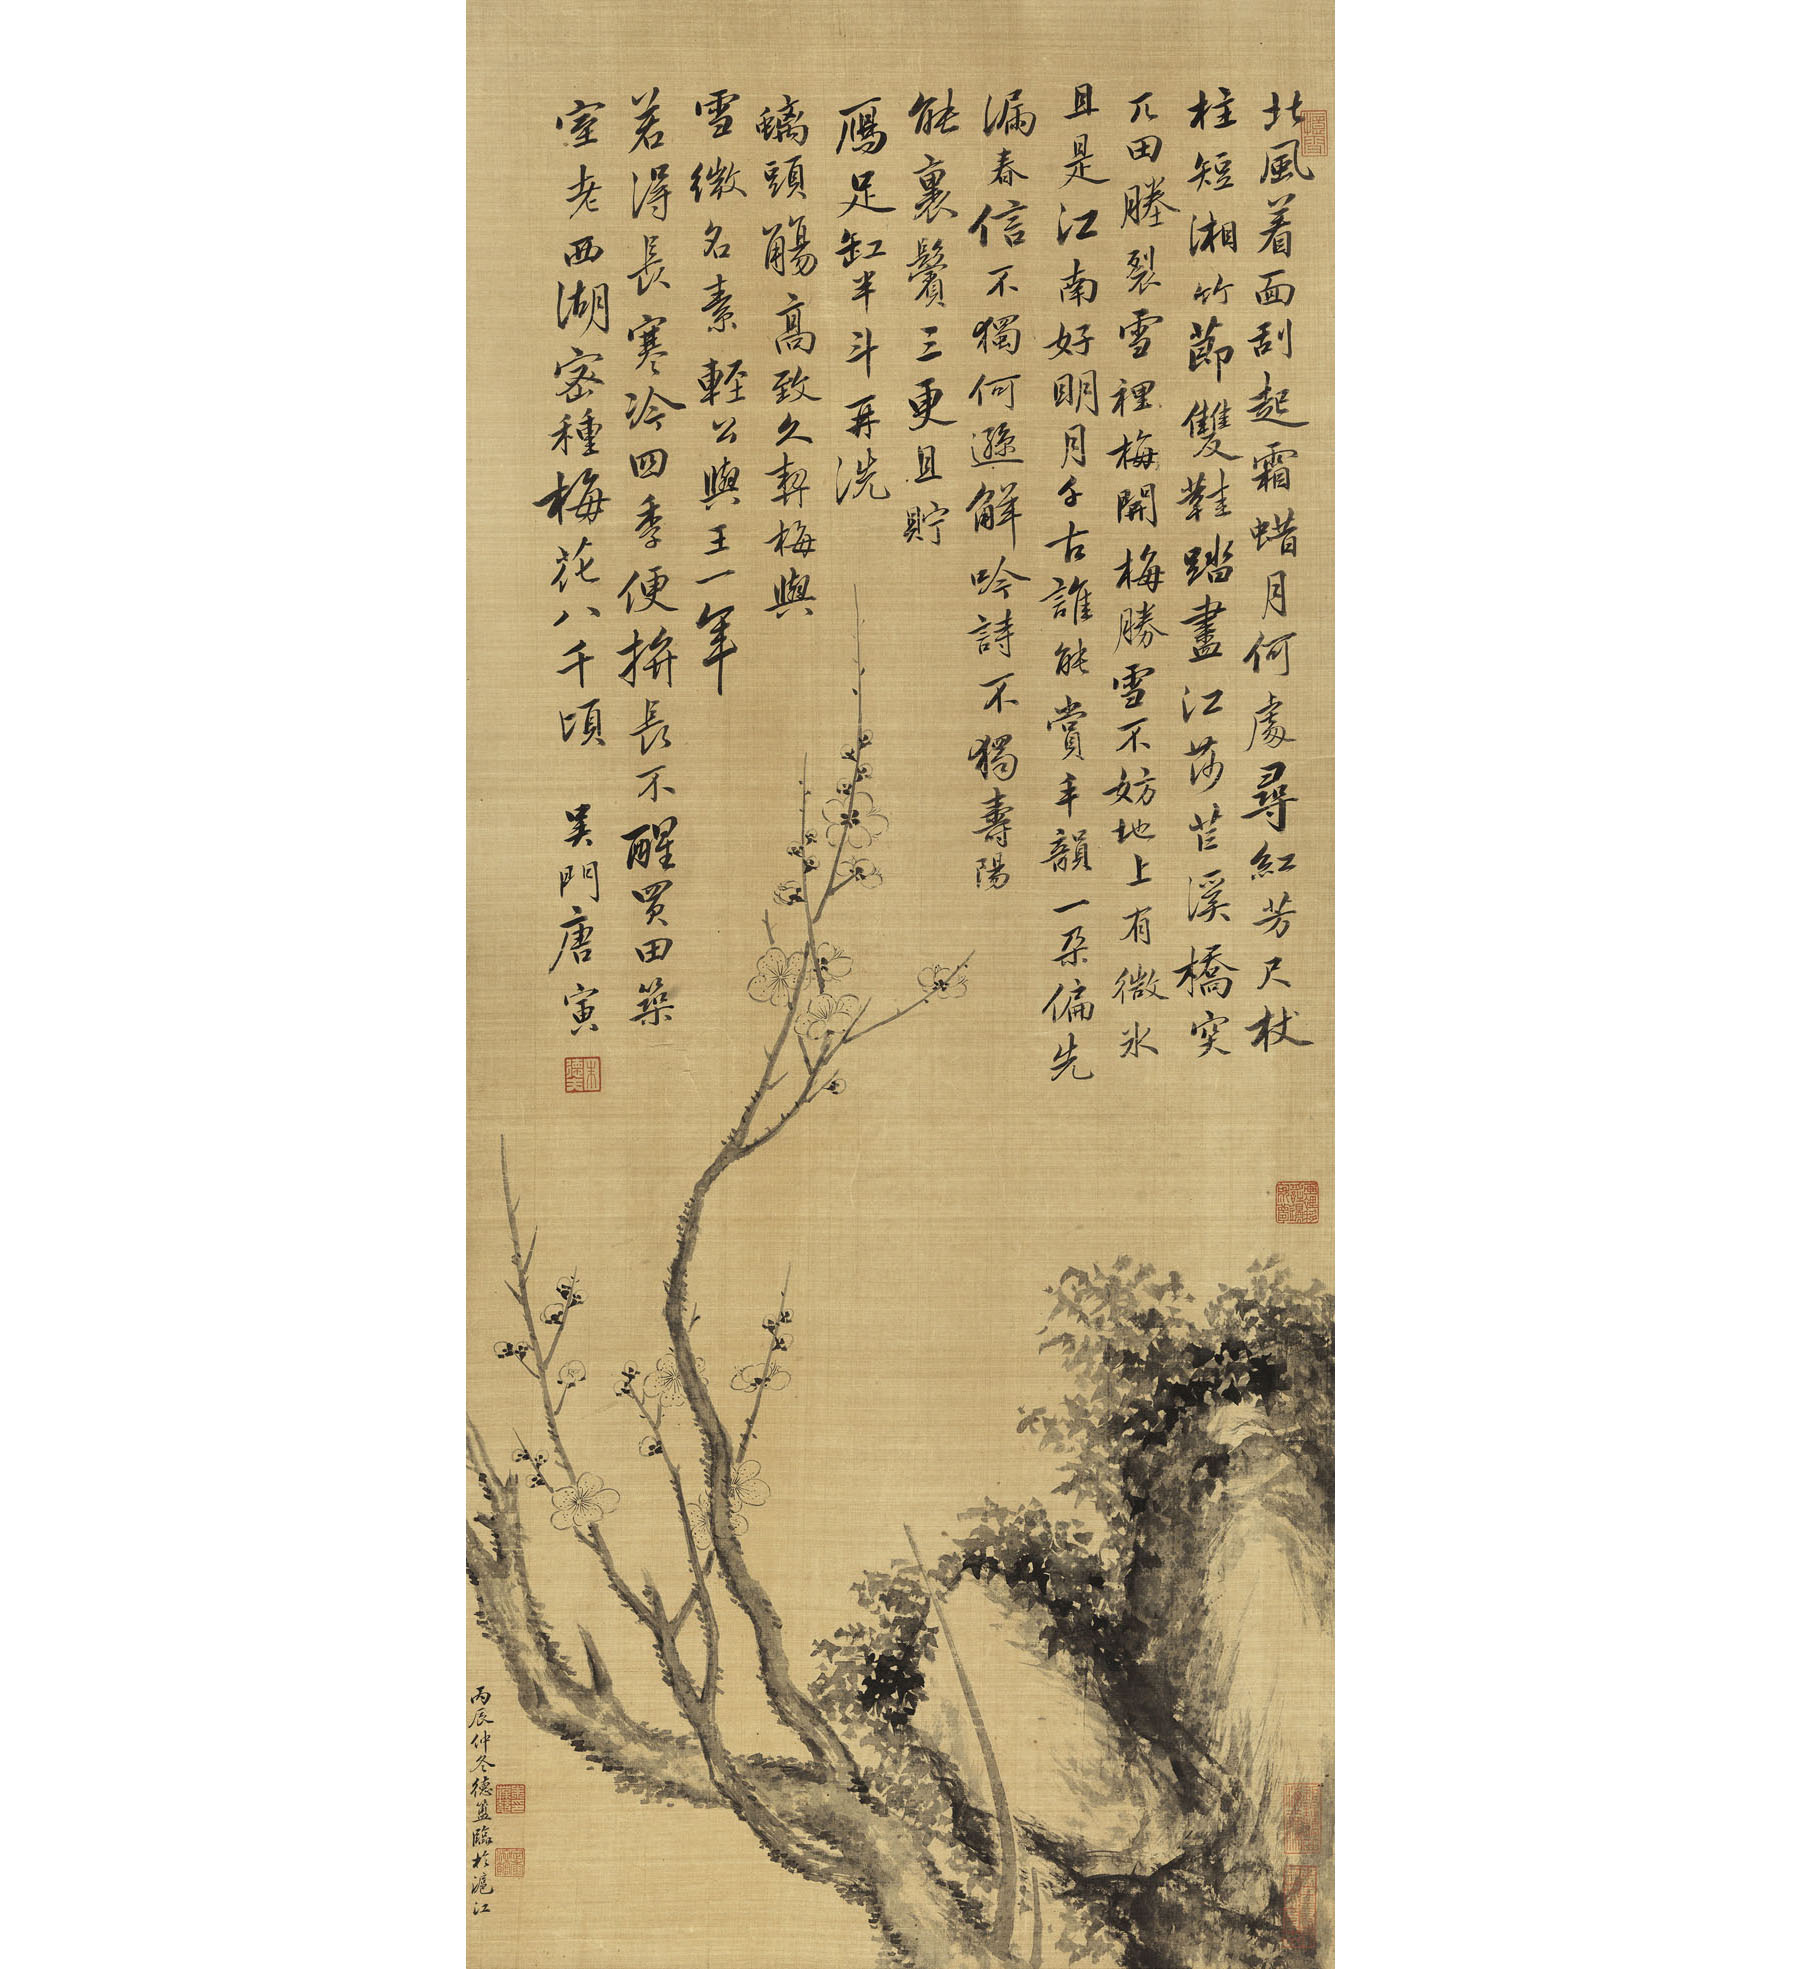 北風着面刮起霜蜡月何處尋紅芳尺杖
柱短湘竹節雙鞋踏盡江莎苔溪橋突
兀田塍裂雪裡梅開梅勝雪不妨地上有微氷
且是江南好明月千古誰能賞丰韻一朶偏先
漏春信不獨何遜解吟詩不獨壽陽
能裹鬢三更且貯
鴈足缸半斗再洗
螭頭觴高致久契梅與
雪微名素輕公與王一年
若得長寒冷四季便拚長不醒買田築
室老西湖密種梅花八千頃 吳門唐寅
丙辰仲冬德簠臨於滬江